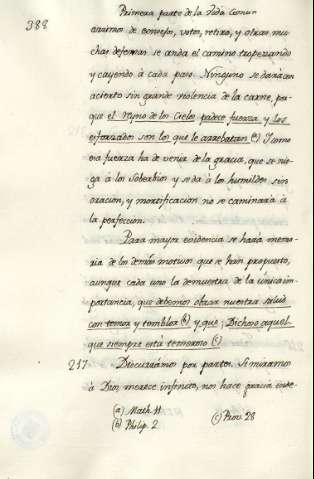 Primera parte de la Vida Comun
388
arrimo de consejo, votos, retiro, y otras mu-
chas defensas se anda el camino tropezando
y cayendo à cada paso. Ninguno se dará con
acierto sin grande violencia de la carne, por-
que el Reyno de los Cielos padece fuerza, y los
esforzados son los que le arrebatan (a) Y como
esa fuerza ha de venir de la gracia, que se nie-
ga à los soberbios y se dá à los humildes sin
oracion, y mortificacion no se caminará a
la perfeccion.
Para mayor evidencia se haria memo-
ria de los demás motivos que se han propuesto,
aunque cada uno la demuestra de la unica im-
portancia, que debemos obrar nuestra salud
con temor y temblor (b) y que; Dichoso aquel
que siempre está temeroso (c)
217. Discurramos por partes. Si miramos
à Dios, merece infinito, nos hace gracia inde-
(a) Math. 11
(b) Philip. 2
(c) Prov. 28